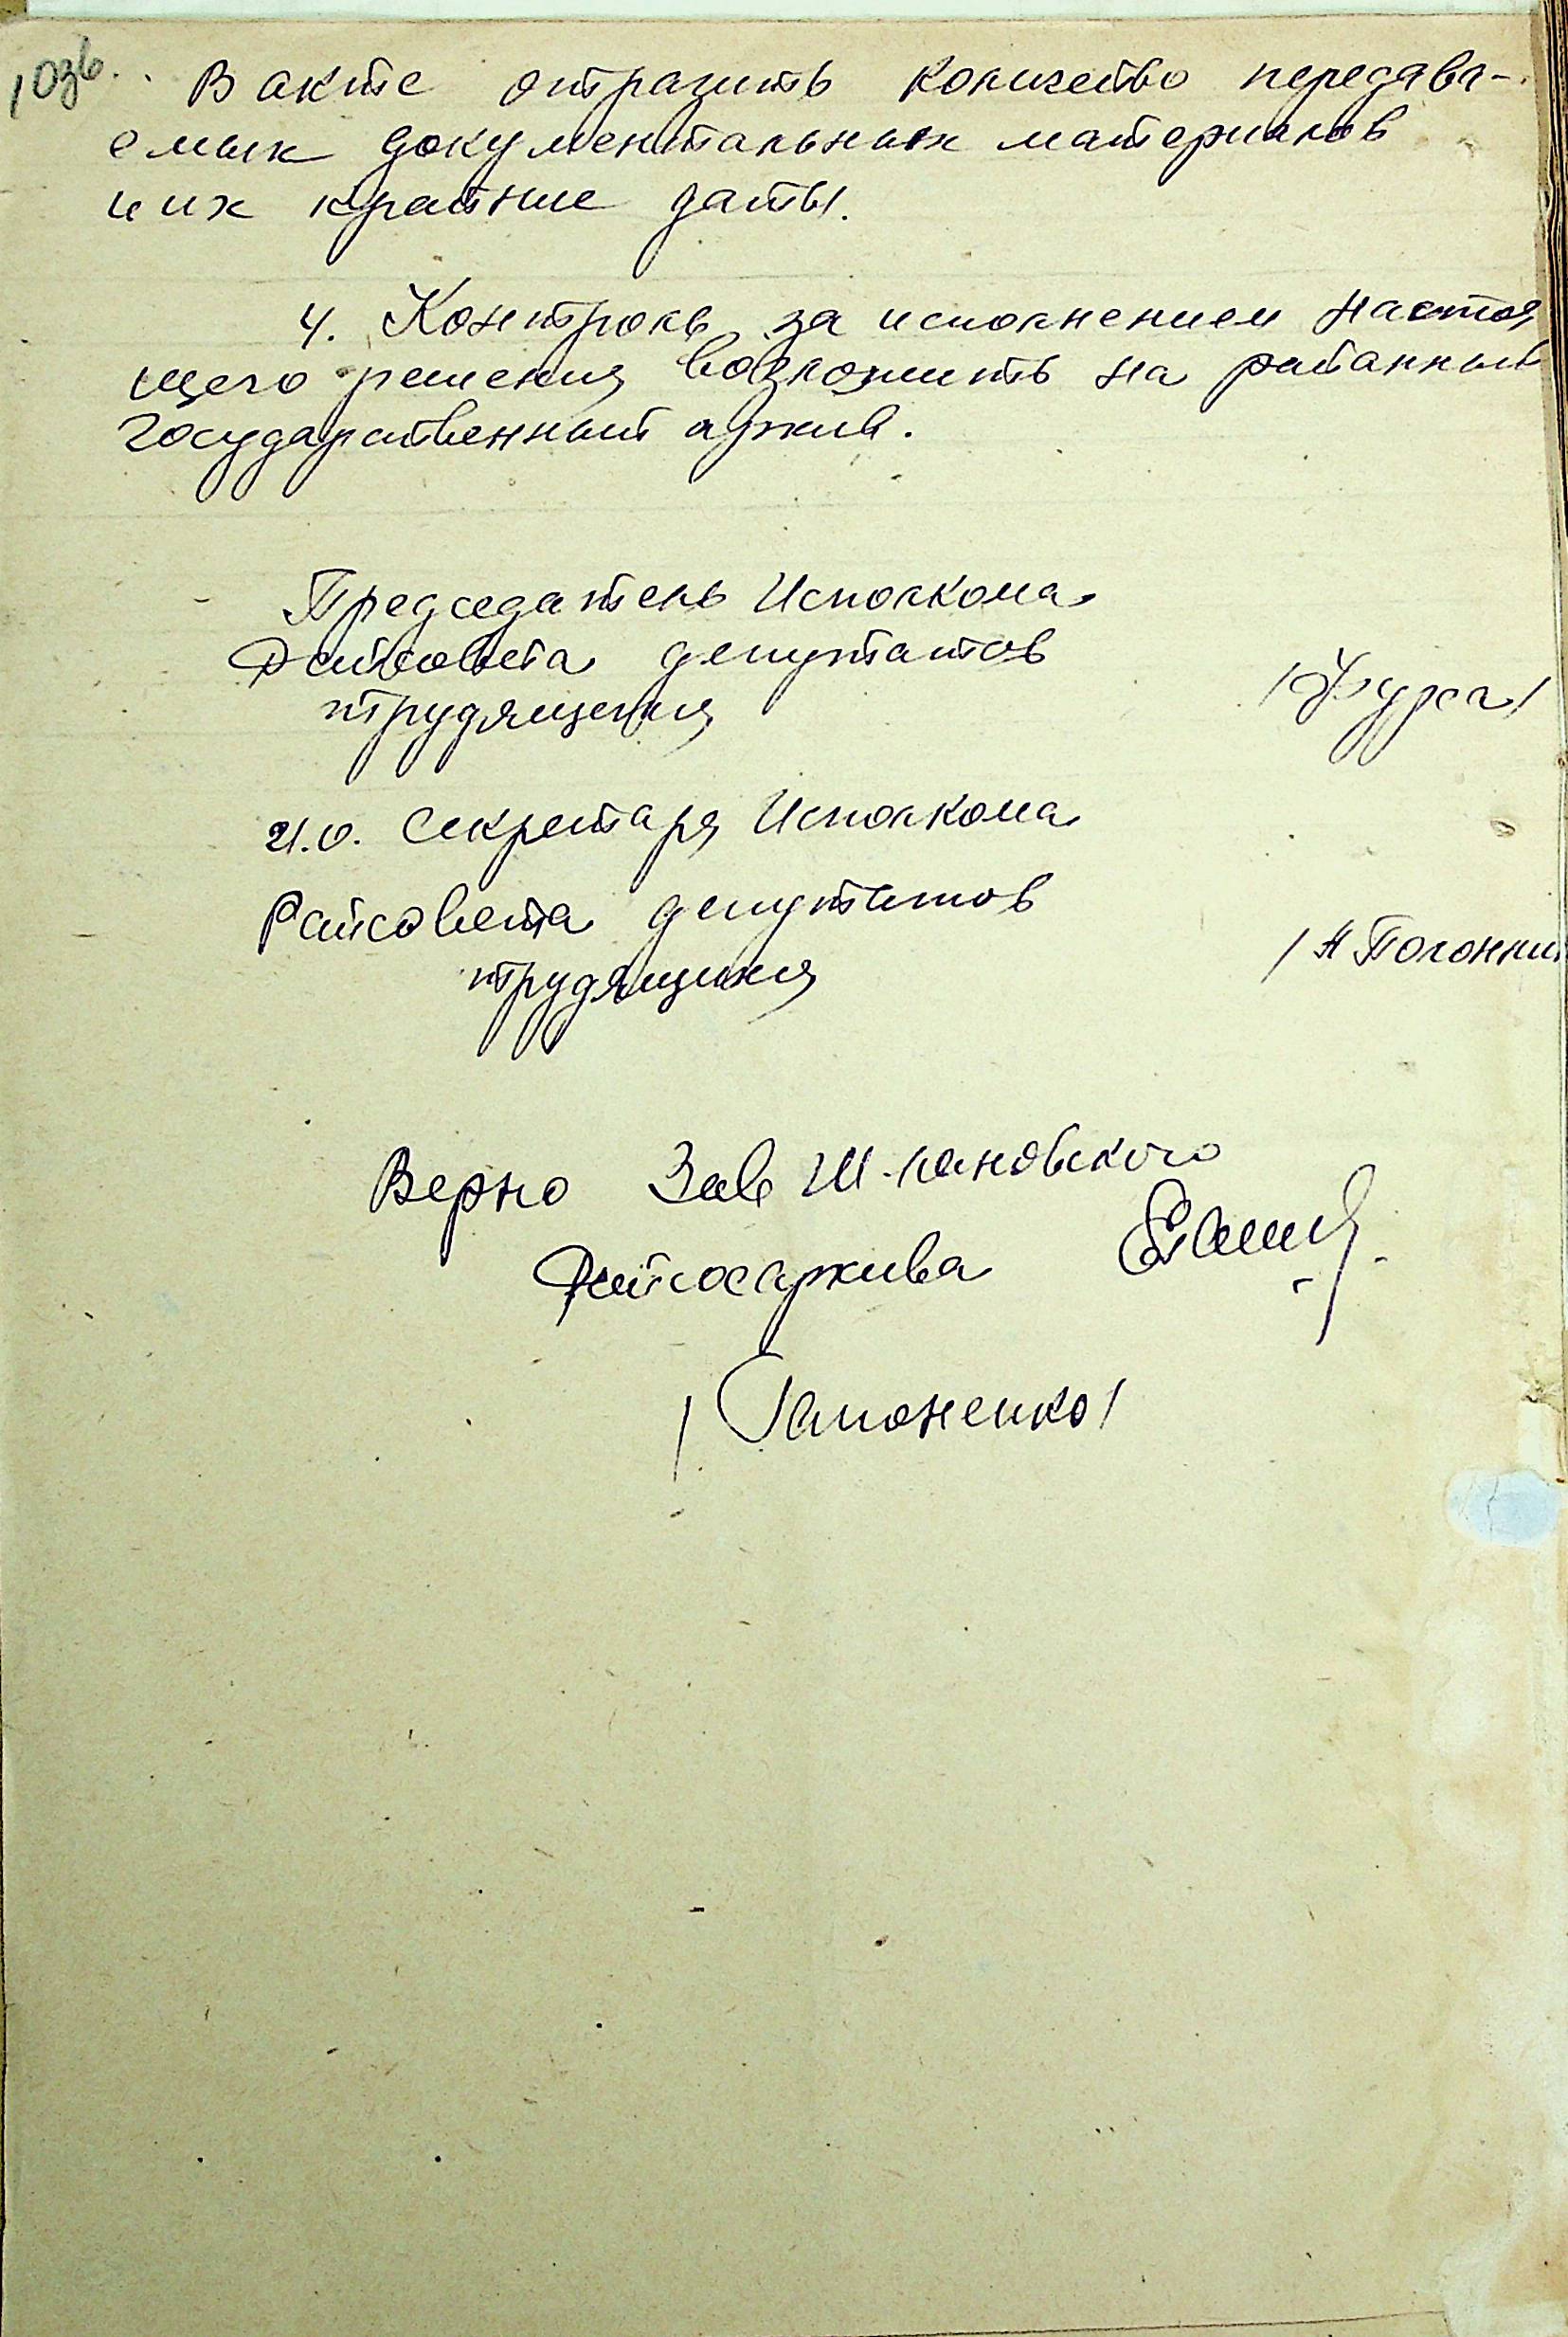 В акте отразить количество передава-
емых документальных материалов
и их крайние даты.
4. Контроль за исполнением настоя
щего решения возложить на районный
государственный архив.
Председатель Исполкома
Райсовета депутатов
трудящихся
/Фурса/
И.о. Секретаря Исполкома
Райсовета депутатов
трудящихся
Верно Зав Ш-лановского
Райгосархива
/Гапоненко/